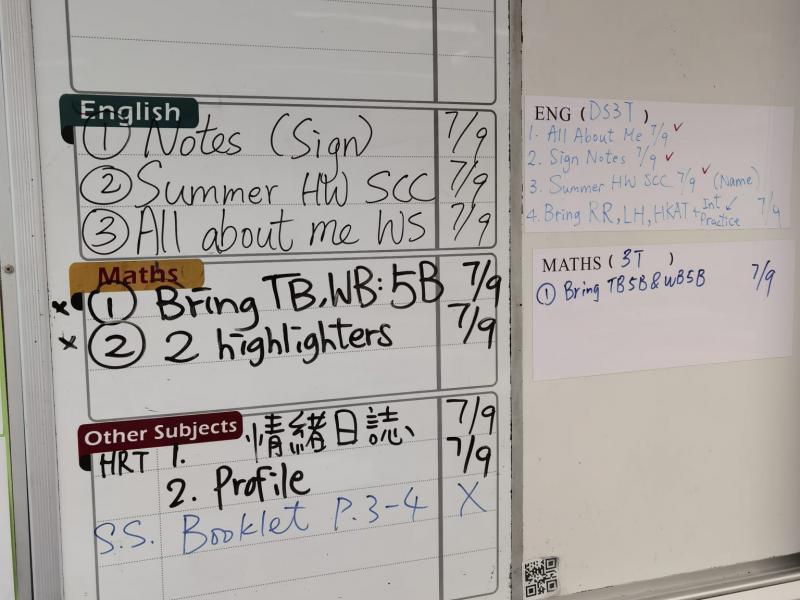 English
① Notes (Sign) 7/9
② Summer HW SCC 7/9
③ All about me WS 7/9
Maths
* ① Bring TB, WB: 5B 7/9
* ② 2 highlighters 7/9
Other Subjects
HRT 1. 情緒日誌 7/9
2. Profile 7/9
S.S. Booklet P.3-4 X
ENG (DS3T)
1. All About Me 7/9 ✓
2. Sign Notes 7/9 ✓
3. Summer HW SCC 7/9 ✓ (Name)
4. Bring RR, LH, HKAT + Int Practice 7/9
MATHS (3T)
① Bring TB5B & WB5B 7/9